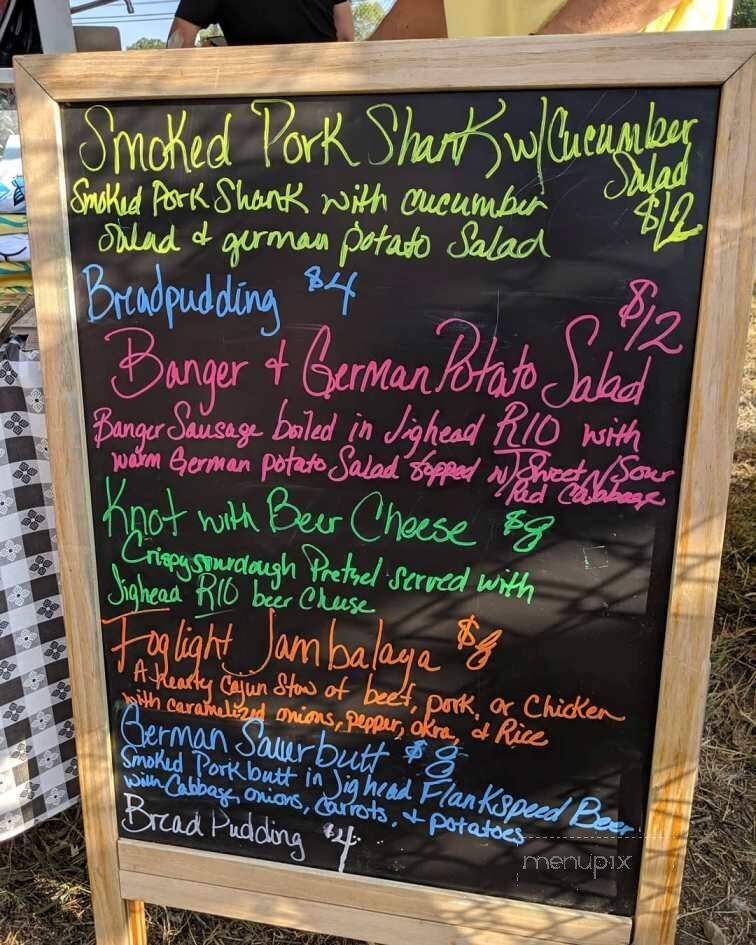 Smoked Pork Shank w/Cucumber
Salad
$12
Smoked Pork Shank with cucumber
Salad & german potato Salad
Breadpudding $4
$12
Banger & German Potato Salad
Banger Sausage boiled in Jighead R10 with
warm German potato Salad topped w/ Sweet N Sour
Red Cabbage
Knot with Beer Cheese $8
Crispy sourdough Pretzel served with
Jighead R10 beer Cheese
Foglight Jambalaya $8
A hearty Cajun Stow of beef, pork, or Chicken
with caramelized onions, pepper, okra, & Rice
German Sauerbutt $8
Smoked Porkbutt in Jighead Flankspeed Beer
with Cabbage, onions, carrots, & potatoes
Bread Pudding $4
menupix